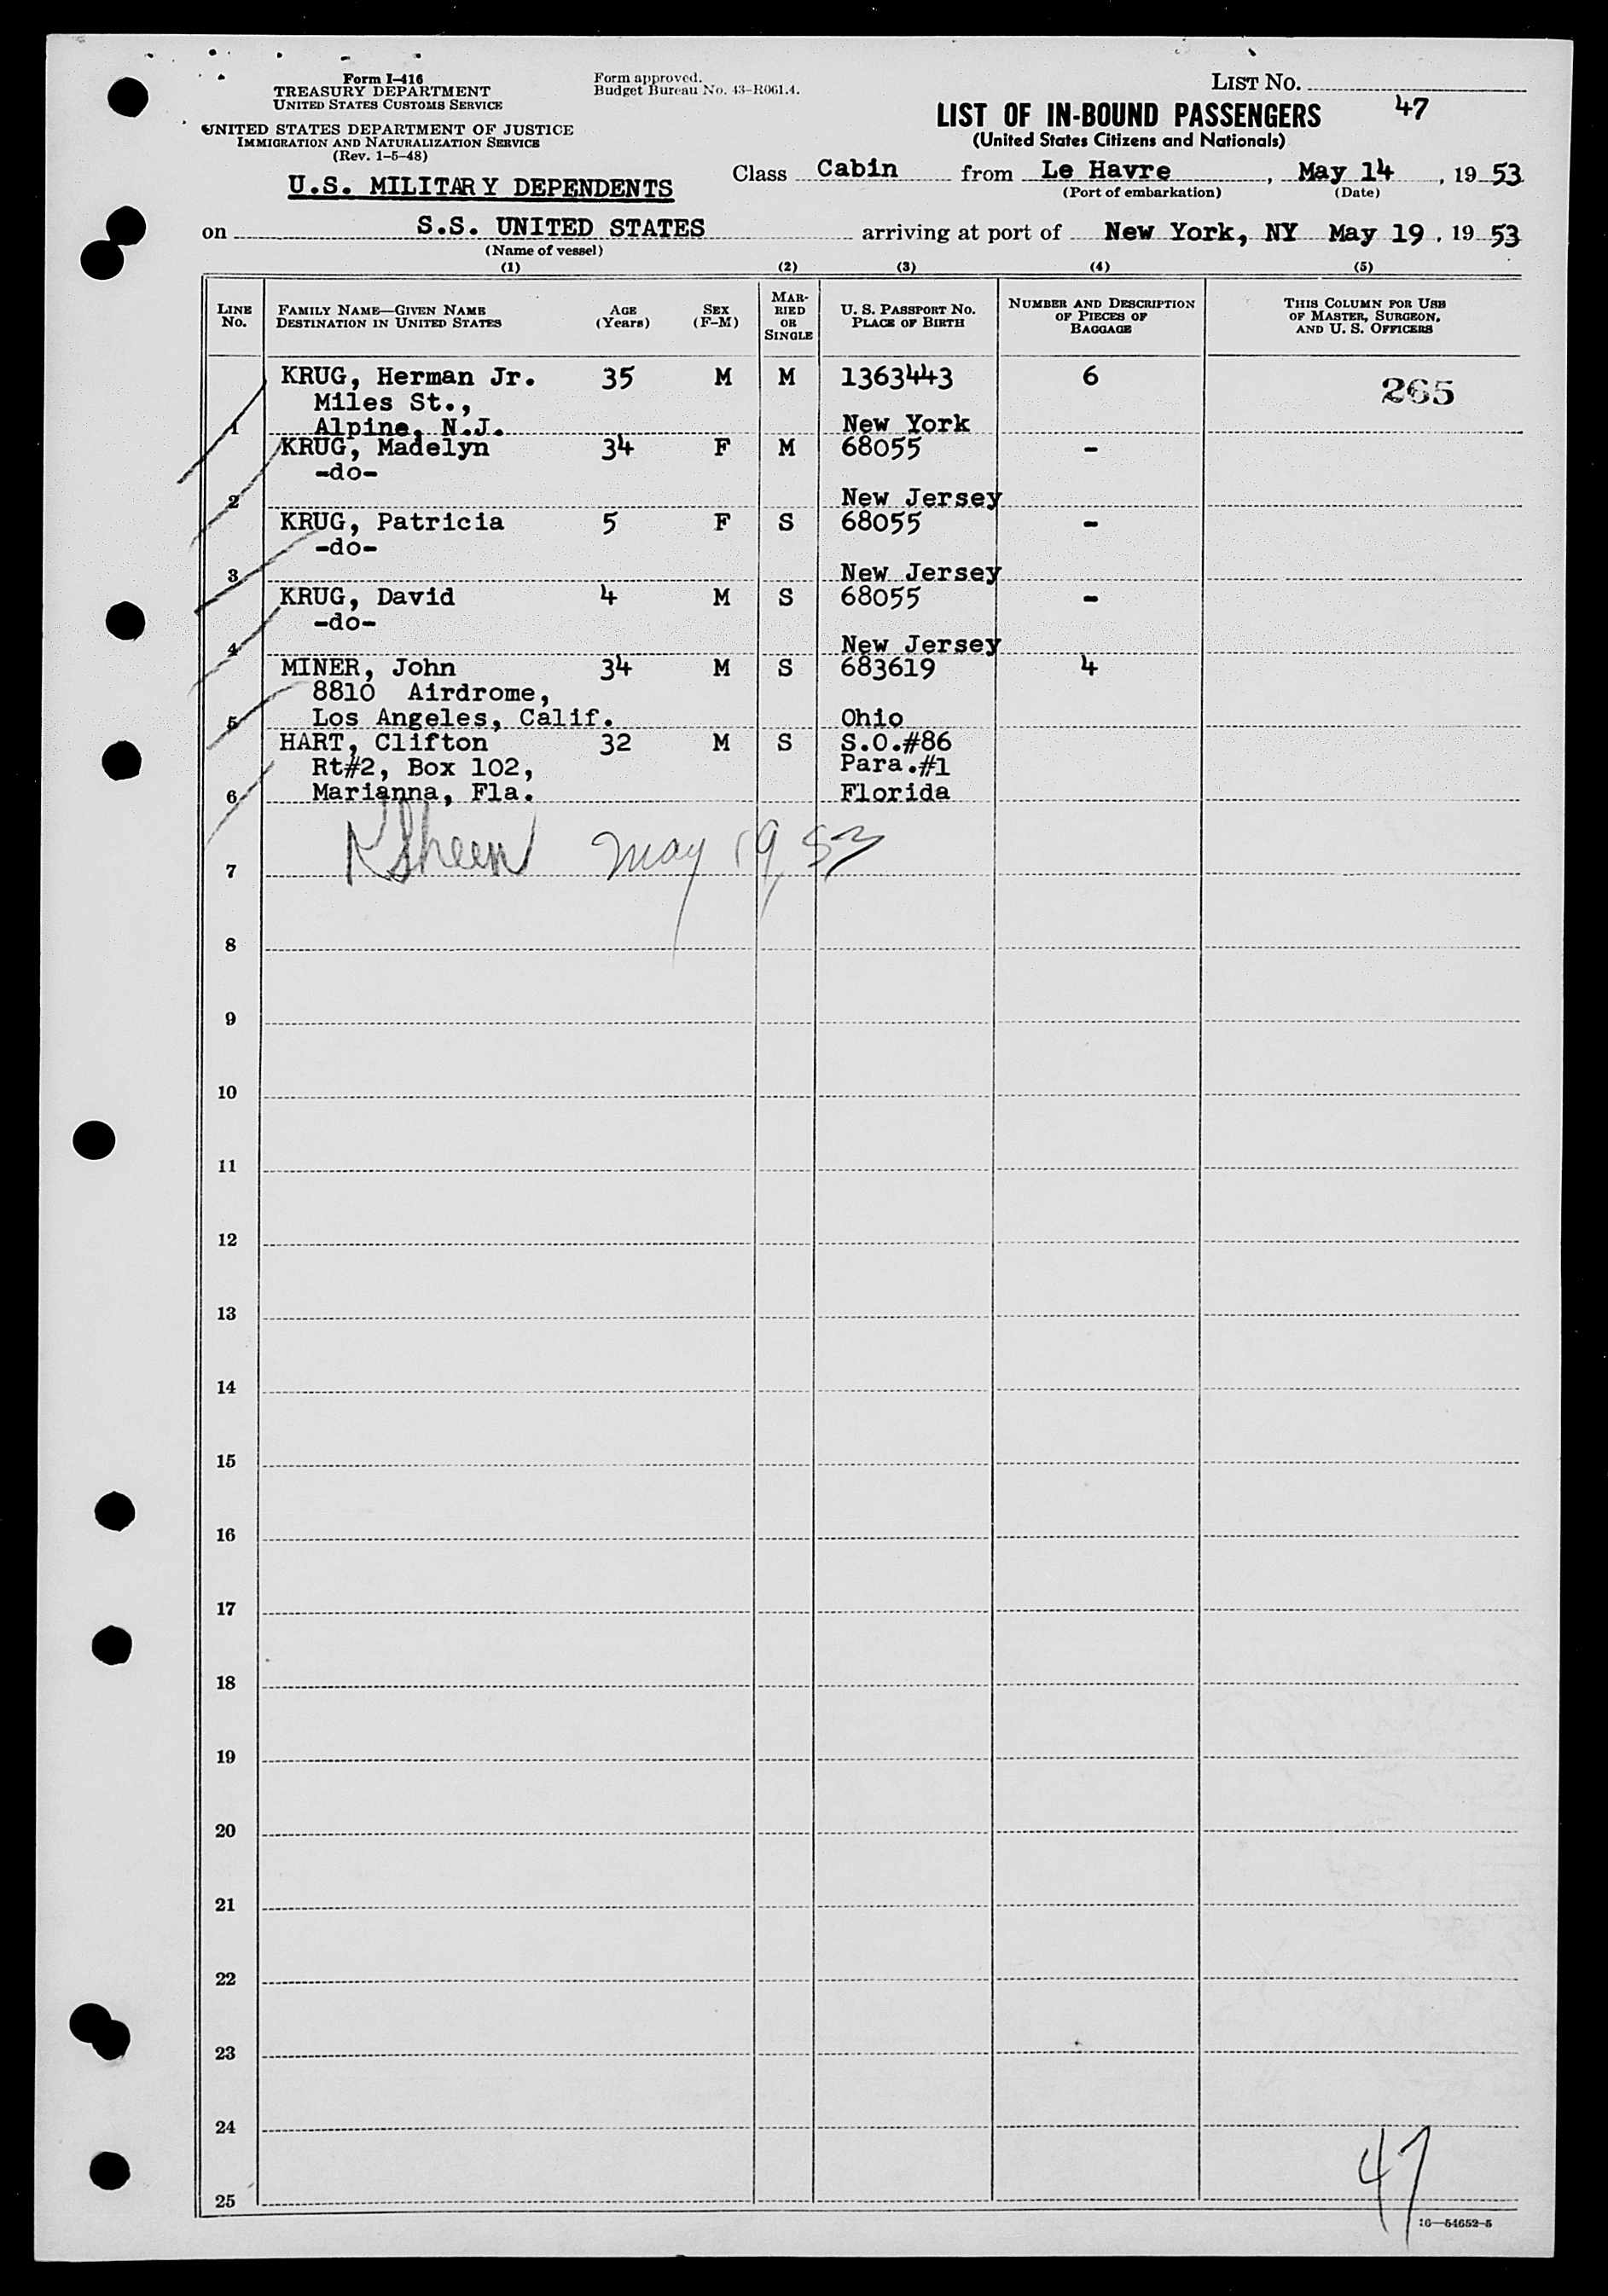 Form I-416
TREASURY DEPARTMENT
UNITED STATES CUSTOMS SERVICE
UNITED STATES DEPARTMENT OF JUSTICE
IMMIGRATION AND NATURALIZATION SERVICE
(Rev. 1-5-48)
Form approved.
Budget Bureau No. 43-R061.4.
LIST NO.
47
LIST OF IN-BOUND PASSENGERS
(United States Citizens and Nationals)
U.S. MILITARY DEPENDENTS
Class Cabin from Le Havre, May 14, 1953
(Port of embarkation) (Date)
on S.S. UNITED STATES arriving at port of New York, NY May 19, 1953
(Name of vessel)
(1) (2) (3) (4) (5)
LINE No.
FAMILY NAME—GIVEN NAME
DESTINATION IN UNITED STATES
AGE (Years)
SEX (F-M)
MARRIED OR SINGLE
U. S. PASSPORT NO.
PLACE OF BIRTH
NUMBER AND DESCRIPTION OF PIECES OF BAGGAGE
THIS COLUMN FOR USE OF MASTER, SURGEON, AND U. S. OFFICERS
KRUG, Herman Jr. 35 M M 1363443 6 265
Miles St.,
1 Alpine, N.J. New York
KRUG, Madelyn 34 F M 68055 -
-do-
2 New Jersey
KRUG, Patricia 5 F S 68055 -
-do-
3 New Jersey
KRUG, David 4 M S 68055 -
-do-
4 New Jersey
MINER, John 34 M S 683619 4
8810 Airdrome,
5 Los Angeles, Calif. Ohio
HART, Clifton 32 M S S.O.#86
Rt#2, Box 102, Para.#1
6 Marianna, Fla. Florida
7 May 19, 53
8
9
10
11
12
13
14
15
16
17
18
19
20
21
22
23
24
25
47
16—54652-5